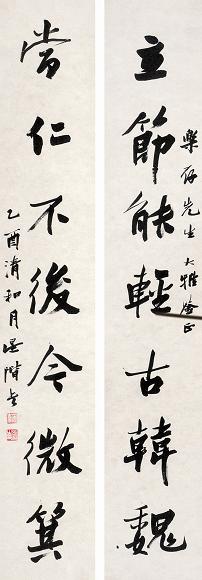 樂存先生大雅正
立節能輕古韓魏
當仁不後今微箕
乙酉清和月